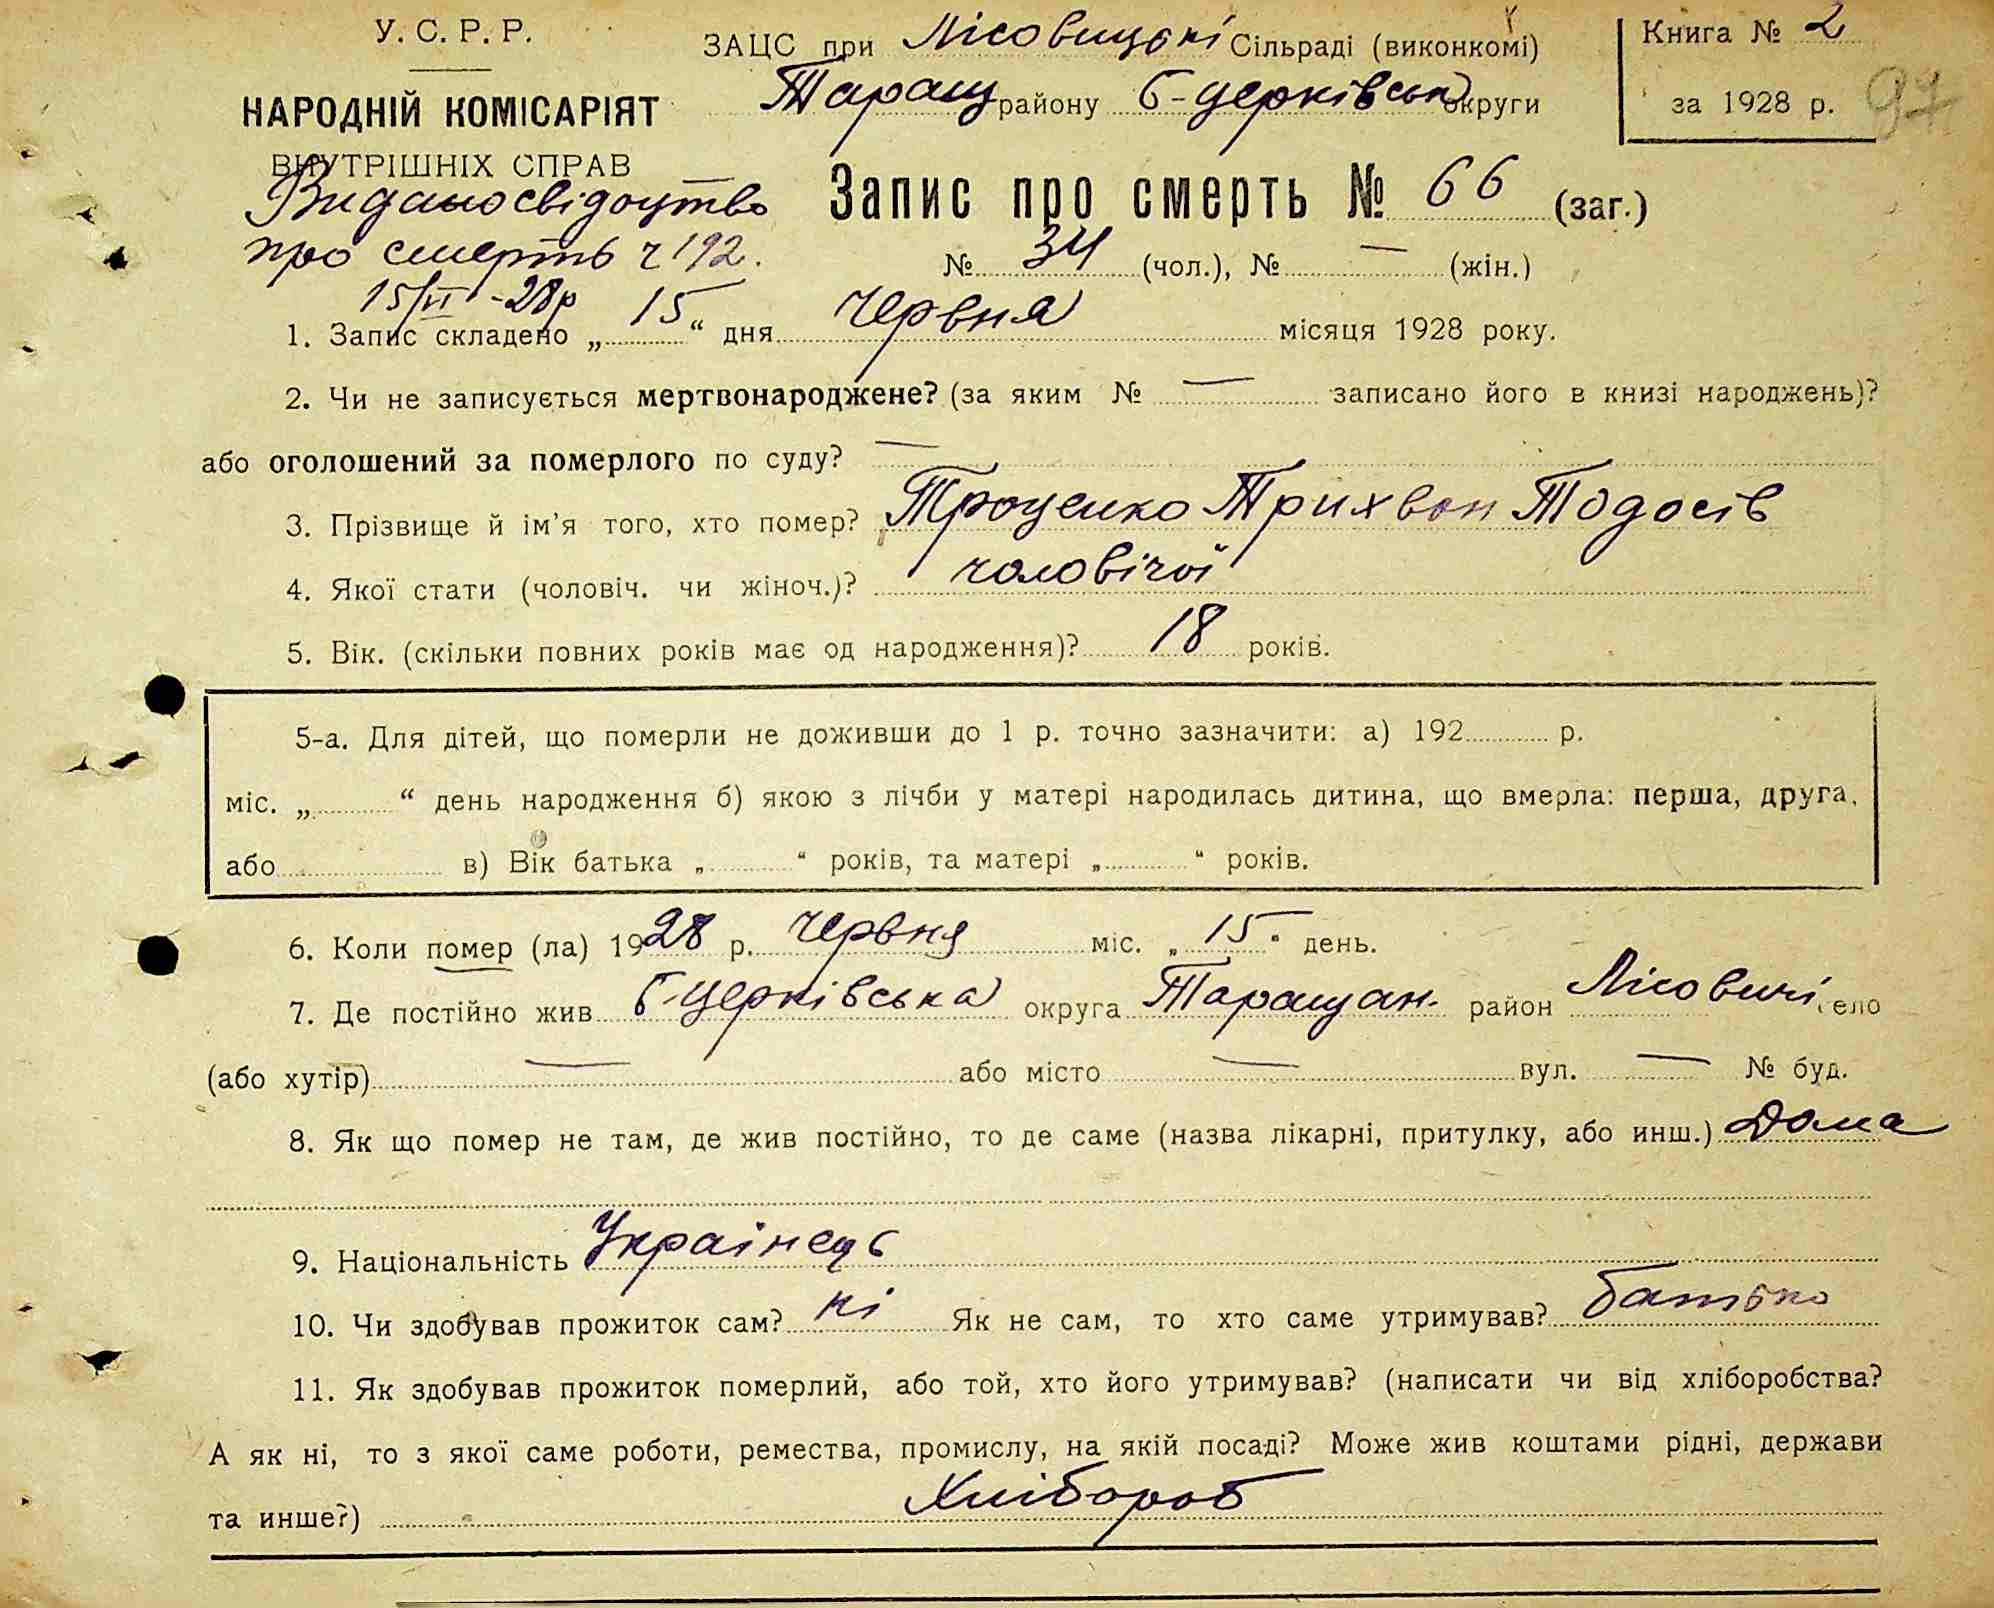 У. С. Р. Р.
НАРОДНІЙ КОМІСАРІЯТ
ВНУТРІШНІХ СПРАВ
Видано свідоцтво
про смерть ч 192.
15/VI -28р
ЗАЦС при Лісовицькі Сільраді (виконкомі)
Таращ району Б-церківськ округи
Книга № 2
за 1928 р.
97
Запис про смерть № 66 (заг.)
№ 34 (чол.), № — (жін.)
1. Запис складено „ 15 “ дня червня місяця 1928 року.
2. Чи не записується мертвонароджене? (за яким № — записано його в книзі народжень)?
або оголошений за померлого по суду? —
3. Прізвище й ім’я того, хто помер? Троценко Трихвон Тодосів
4. Якої стати (чоловіч. чи жіноч.)? чоловічої
5. Вік. (скільки повних років має од народження)? 18 років.
5-а. Для дітей, що померли не доживши до 1 р. точно зазначити: а) 192 р.
міс. „ “ день народження б) якою з лічби у матері народилась дитина, що вмерла: перша, друга,
або в) Вік батька „ “ років, та матері „ “ років.
6. Коли помер (ла) 1928 р. червня міс. „ 15 “ день.
7. Де постійно жив Б-церківська округа Таращан. район Лісовичі село
(або хутір) — або місто — вул. — № буд.
8. Як що помер не там, де жив постійно, то де саме (назва лікарні, притулку, або инш.) Дома
9. Національність Украінець
10. Чи здобував прожиток сам? ні Як не сам, то хто саме утримував? батько
11. Як здобував прожиток померлий, або той, хто його утримував? (написати чи від хліборобства?
А як ні, то з якої саме роботи, ремества, промислу, на якій посаді? Може жив коштами рідні, держави
та инше?) Хлібороб